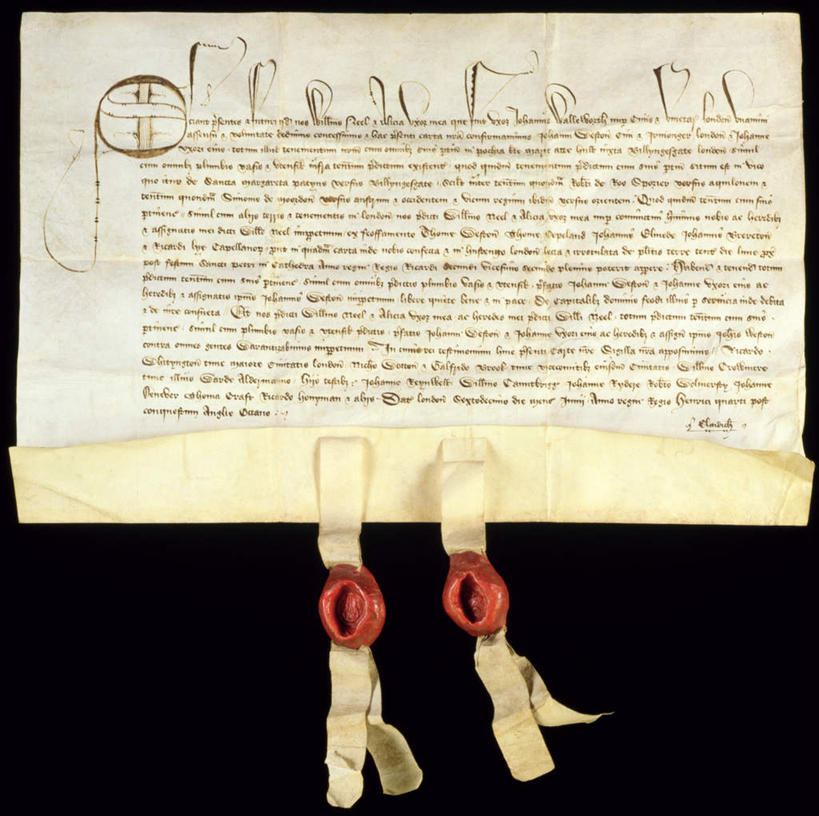 Sciant p̄sentes & futuri qd̄ nos Willm̄s Neel & Alicia Uxor mea que fuit uxor Johannis Walleworth nup Ciuis & London̄ unanimi
assensu & voluntate dedimus concessimus & hac p̄senti carta nr̄a confirmauimus Johanni Weston̄ Ciui & Iremonger london̄ & Johanne
uxori eius totum illud tenementum nr̄m cum omnibȝ suis ptin̄ in pochia bt̄e Marie atte hull iuxta Billyngesgate london̄ simul
cum omnibȝ plumbis vasis & utensil̄ infra ten̄tum p̄dictum existent̄ quod quidm̄ ten̄tum cum suis ptin̄ situm est in vico
quo itur de Sancta Margareta patyns versus Billyngesgate scilt̄ inter ten̄tum quondm̄ Robt̄i de Ros Spicer versus aquilonem &
ten̄tum quondm̄ Simonis de Mordon̄ versus austrum & occidentem & vicum regium ibidm̄ versus orientem Quod quidm̄ ten̄tum cum suis
ptinenc̄ simul cum aliis terris & tenementis in london̄ nos p̄dc̄i Willm̄s Neel & Alicia uxor mea nup coniunctim huimus nobis ac heredibȝ
& assignatis mei dicti Willi Neel imppetuum ex feoffamento Thome Weston̄ Thome Copeland Johannis Olmede Johannis Brereton̄
& Ricardi lye Capellanoȝ put in quadm̄ carta inde nobis confecta & in hustengo london̄ lecta & irrotulata de pl̄itis terre tent̄ die lune px̄
post festum Sancti petri in Cathedra Anno regni Regis Ricardi secundi vicesimo secundo plenius poterit appere Habend̄ & tenend̄ totum
p̄dictum ten̄tum cum suis ptinenc̄ simul cum omnibȝ p̄dictis plumbis vasis & utensil̄ p̄fatis Johanni Weston̄ & Johanne uxori eius ac
heredibȝ & assignatis ipius Johannis Weston̄ imppetuum libere quiete bene & in pace De Capitalibȝ dominis feodi illius p seruicia inde debita
& de iure consueta Et nos p̄dicti Willm̄s Neel & Alicia uxor mea ac heredes mei p̄dicti Willi Neel totum p̄dictum ten̄tum cum suis
ptinenc̄ simul cum plumbis vasis & utensil̄ p̄dictis p̄fatis Johanni Weston̄ & Johanne uxori eius ac heredibȝ & assign̄ ipius Joh̄is Weston̄
contra omnes gentes Warantizabimus imppetuum In cuius rei testimonium huic p̄senti Carte nr̄e Sigilla nr̄a apposuimus Ricardo
Whityngton̄ tunc maiore Ciuitatis london̄ Nicho Wotton̄ & Galfrido Brook tunc vicecomitibȝ eiusdm̄ Ciuitatis Willmo Crowmere
tunc illius Warde Aldermanno Hijs testibȝ Johanne Reynwell Willmo Cambrigg Johanne Rydere Robt̄o Wolmersty Johanne
Thoma Craft Ricardo Honyman & aliis Dat̄ london̄ Sextodecimo die mens̄ Junii Anno regni Regis Henrici quarti post
conquestum Anglie Octauo